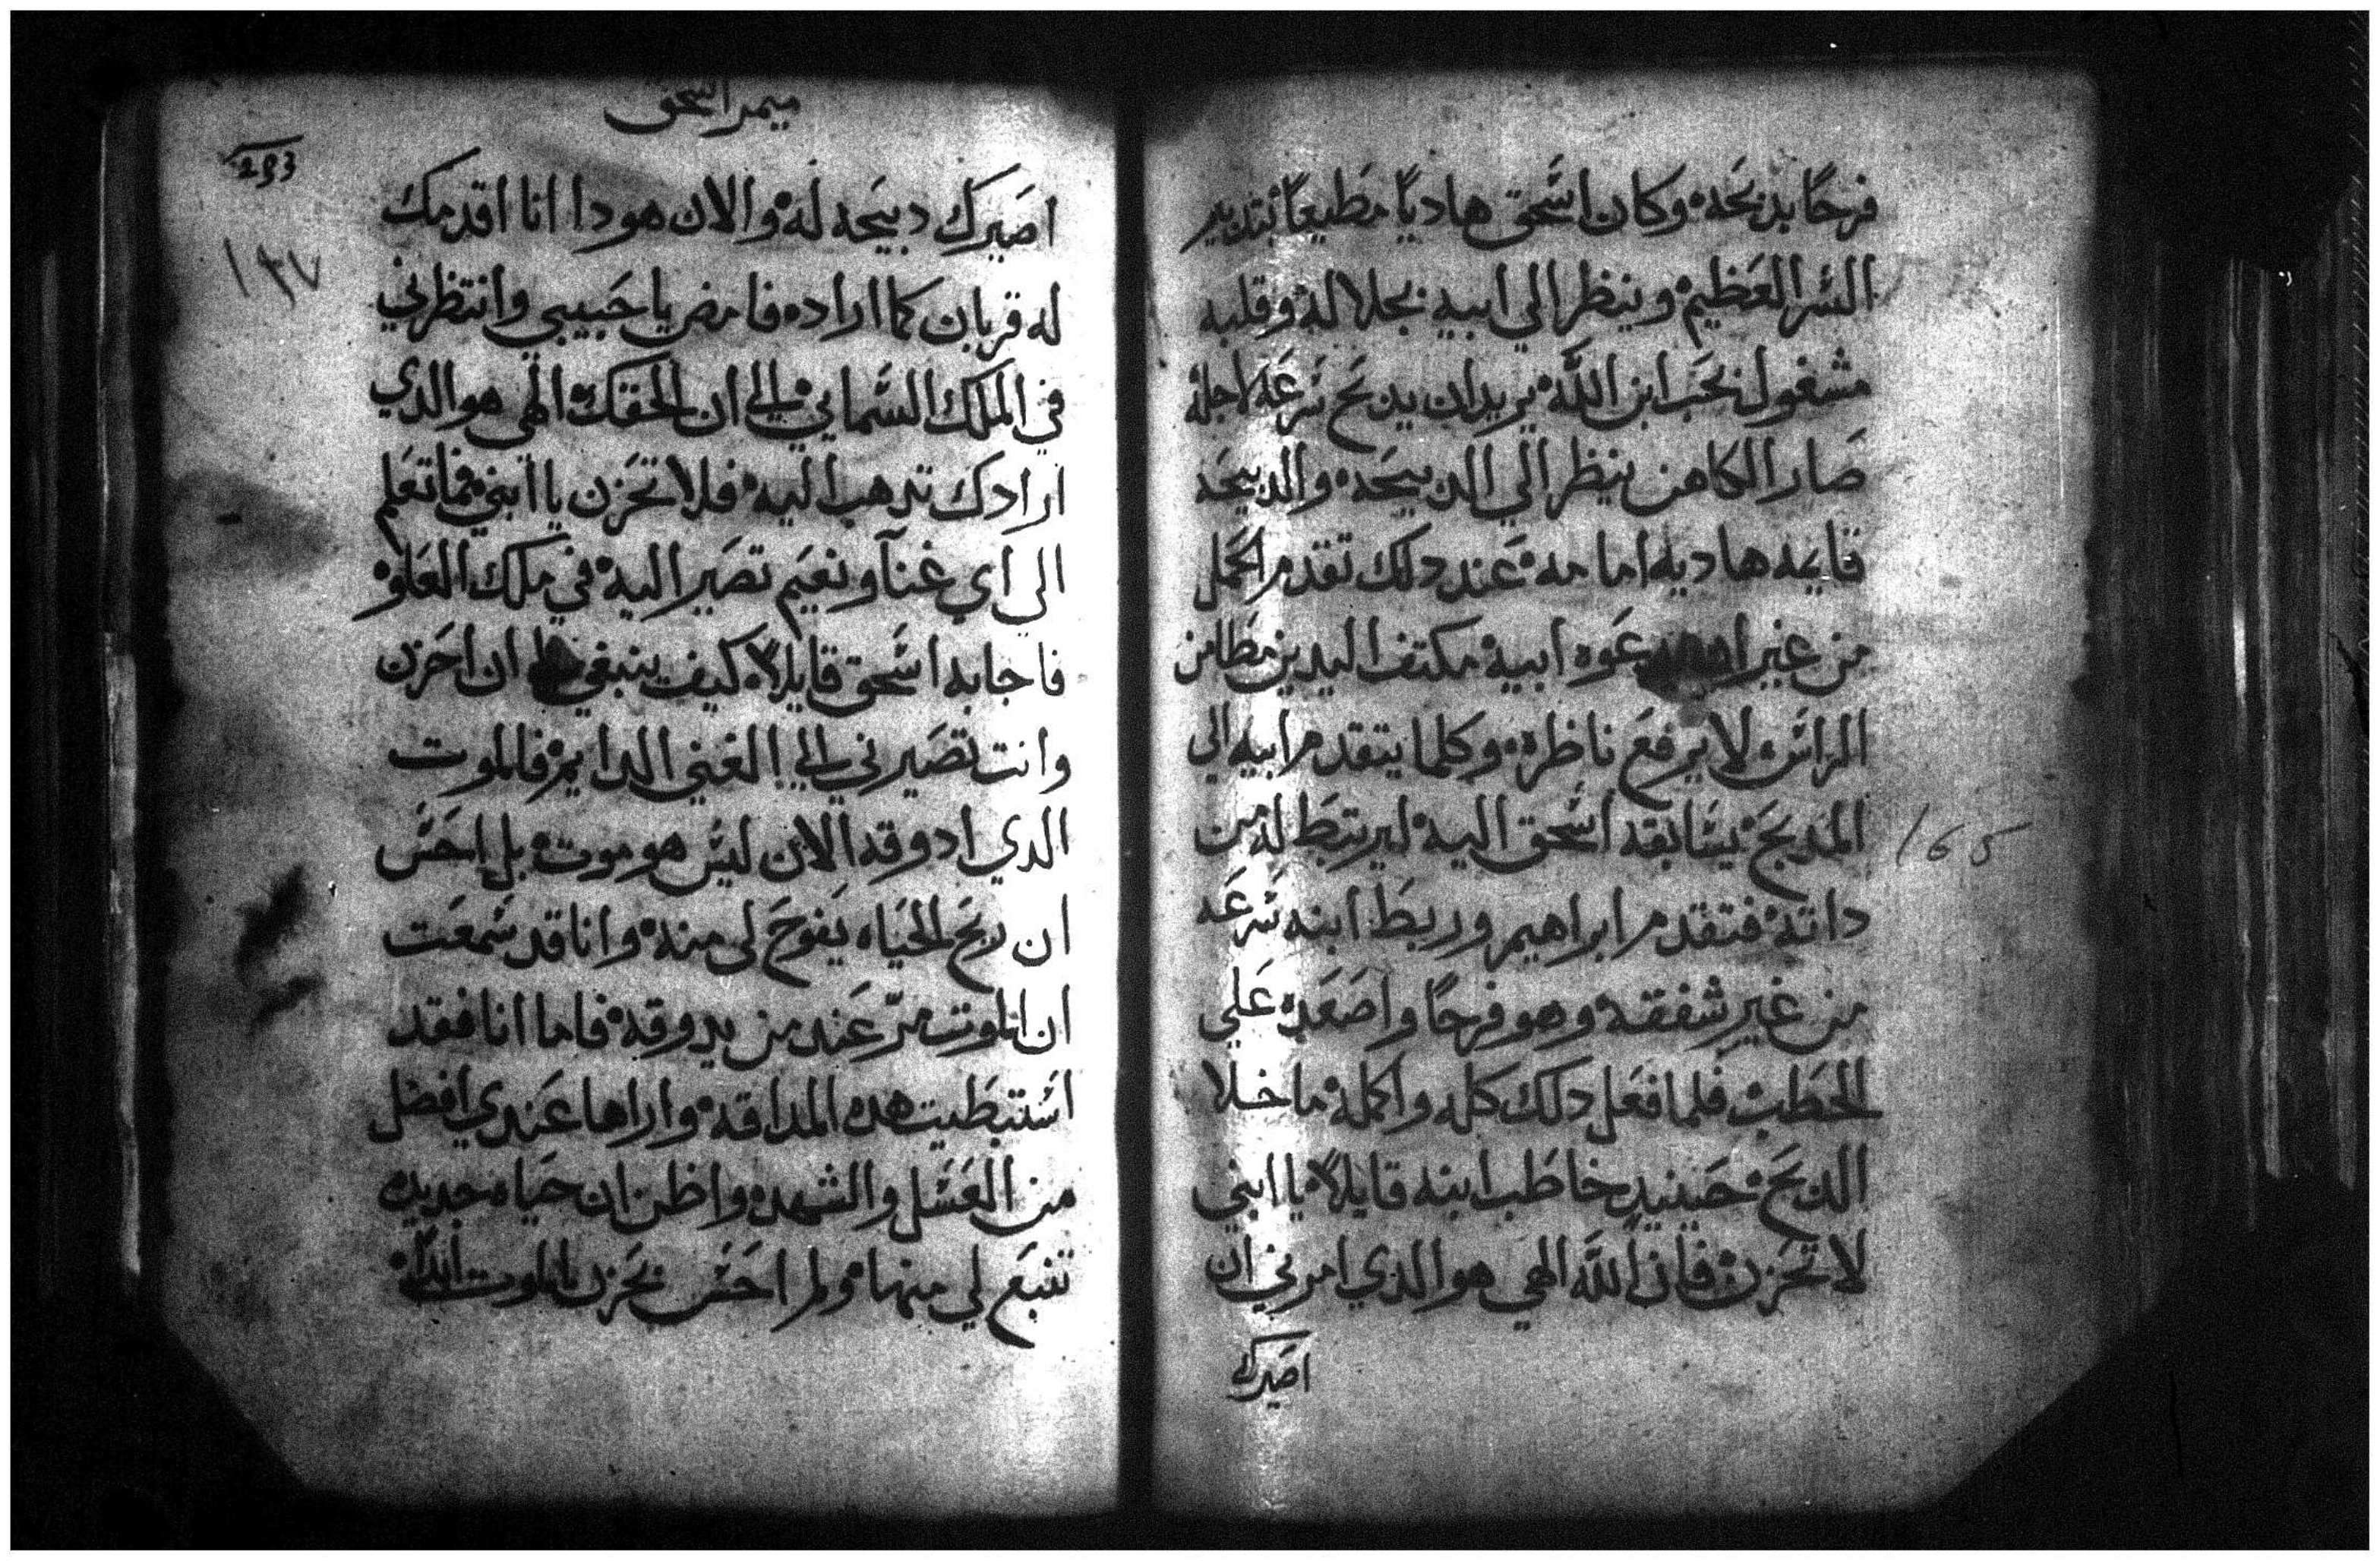 فرحًا بدبحَه وكان اسَّحق هاديًا مطَيعاً بتدبير
السَّر العَظيم وينظر الي ابيه بجلاله وقلبه
مشغول بحَب ابن اللَّه يريد ان يدبَح سَرعَه لاجله
صَار الكاهن ينظر الي الدبيحَه والدبيحَه
قايمه هاديه امامه عَند دلك تقدم الحَمل
من غير عَوه ابيه مكتف اليدين مطَامن
الراسَ لا يرفعَ ناظره وكلما يتقدم ابيه الي
المدبحَ يسَابقه اسَّحق اليه ليرتبطَ له من
165
داته فتقدم ابراهيم وربطَ ابنه سَرعَه
من غير شفقه وهو فرحًا واصَعَده عَلي
الحَطَب فلما فعَل دلك كله واكمله ما خلا
الدبحَ حَينيدٍ خاطَب ابنه قايلاً يا ابني
لا تحَزن فان اللَّه الهي هو الدي امرني ان
اصَيرك
ميمر اسحق
293
١٩٧
اصَيرك دبيحَه له والان هودا انا اقدمك
له قربان كما اراده فامض يا حَبيبي وانتظرني
في الملك السَّمايي الي ان الحَقك الهي هو الدي
ارادك تدهب اليه فلا تحَزن يا ابني فما تعَلم
الي اي غنآ ونعَيم تصَير اليه في ملك العَلو
فاجابه اسَّحق قايلاً كيف ينبغي ان احَزن
وانت تصَيرني الي الغني الدايم فالموت
الدي ادوقه الان ليسَ هو موت بل احَسَ
ان ريحَ الحَياه يَفوحَ لي منه وانا قد سَّمعَت
ان الموت مرّ عَند من يدوقه فاما انا فقد
اسَتبطَيت هده المداقه واراها عَندي افضل
من العَسَّل والشهده واظن ان حَياه جديده
تنبَع لي منها ولم احَسَ بحَزن الموت ابداً